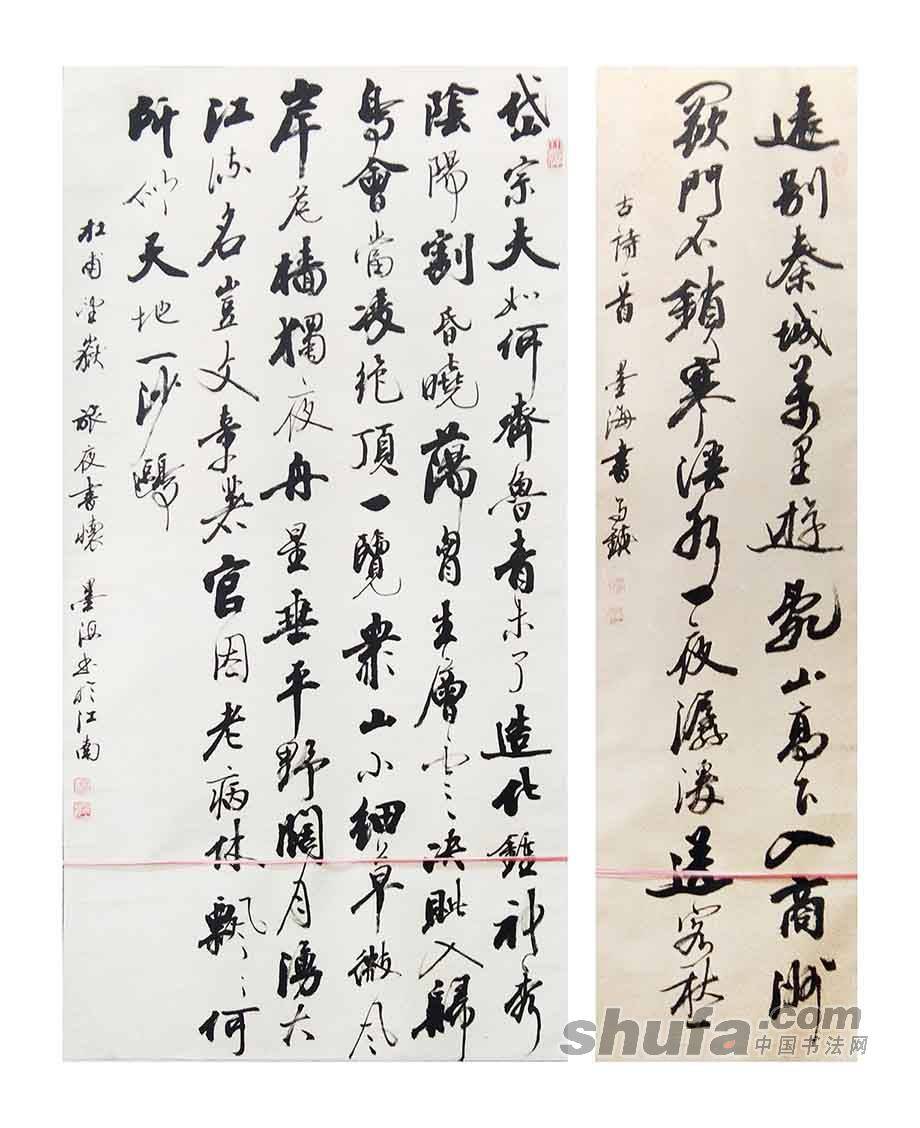 遠別秦城萬里遊亂山高下入商州
關門不鎖寒溪水一夜潺湲送客秋
古詩一首 墨海書
岱宗夫如何齊魯青未了造化鍾神秀
陰陽割昏曉蕩胷生層云決眥入歸
鳥會當凌絕頂一覽衆山小細草微風
岸危檣獨夜舟星垂平野闊月湧大
江流名豈文章著官因老病休飄〻何
所似天地一沙鷗
杜甫望嶽 旅夜書懷 墨海书於江南
shufa.com
中国书法网